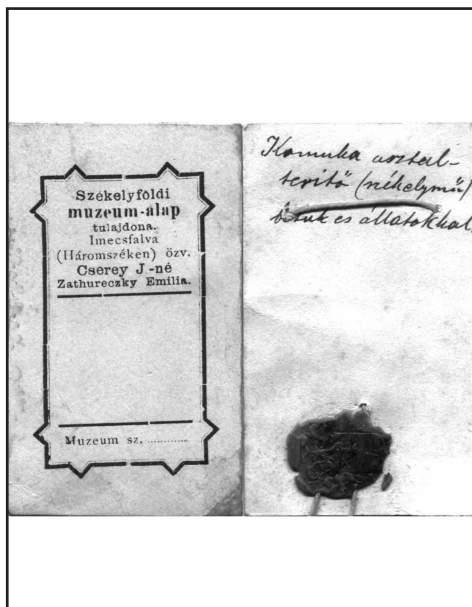 Székelyföldi
muzeum-alap
tulajdona.
Imecsfalva
(Háromszéken) özv.
Cserey J.-né
Zathureczky Emilia.
Muzeum sz. ............
asztal-
terítő
és állatokkal.